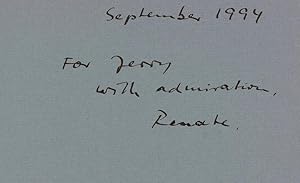 September 1994
For Jerry
with admiration,
Renate.